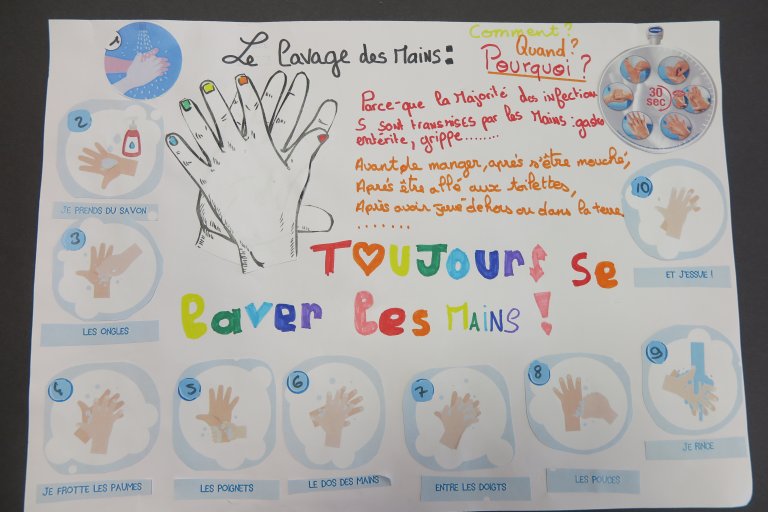 Le lavage des Mains:
Comment?
Quand?
Pourquoi?
Parce-que la Majorité des infection
s sont transmises par les Mains: gastro
entérite, grippe........
Avant de manger, après s'être mouché,
Après être allé aux toilettes,
Après avoir joué dehors ou dans la terre
........
TOUJOURS se
laver les MAINS!
1
2
JE PRENDS DU SAVON
3
LES ONGLES
4
JE FROTTE LES PAUMES
5
LES POIGNETS
6
LE DOS DES MAINS
7
ENTRE LES DOIGTS
8
LES POUCES
9
JE RINCE
10
ET J'ESSUIE !
30
sec